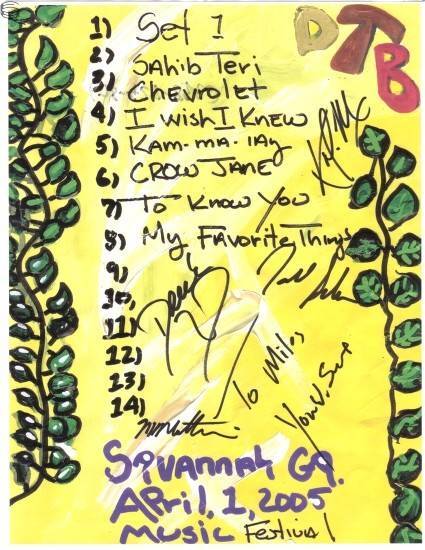 DTB
1) Set 1
2) SAhib Teri
3) Chevrolet
4) I wish I KNEW
5) KAM-MA-lAy
6) CROW JANE
7) To KNOW YOU
8) My FAVoriTe Things
9)
10)
11)
12)
13)
14)
To Miles
SAVANNAh GA.
April, 1, 2005
Music Festival